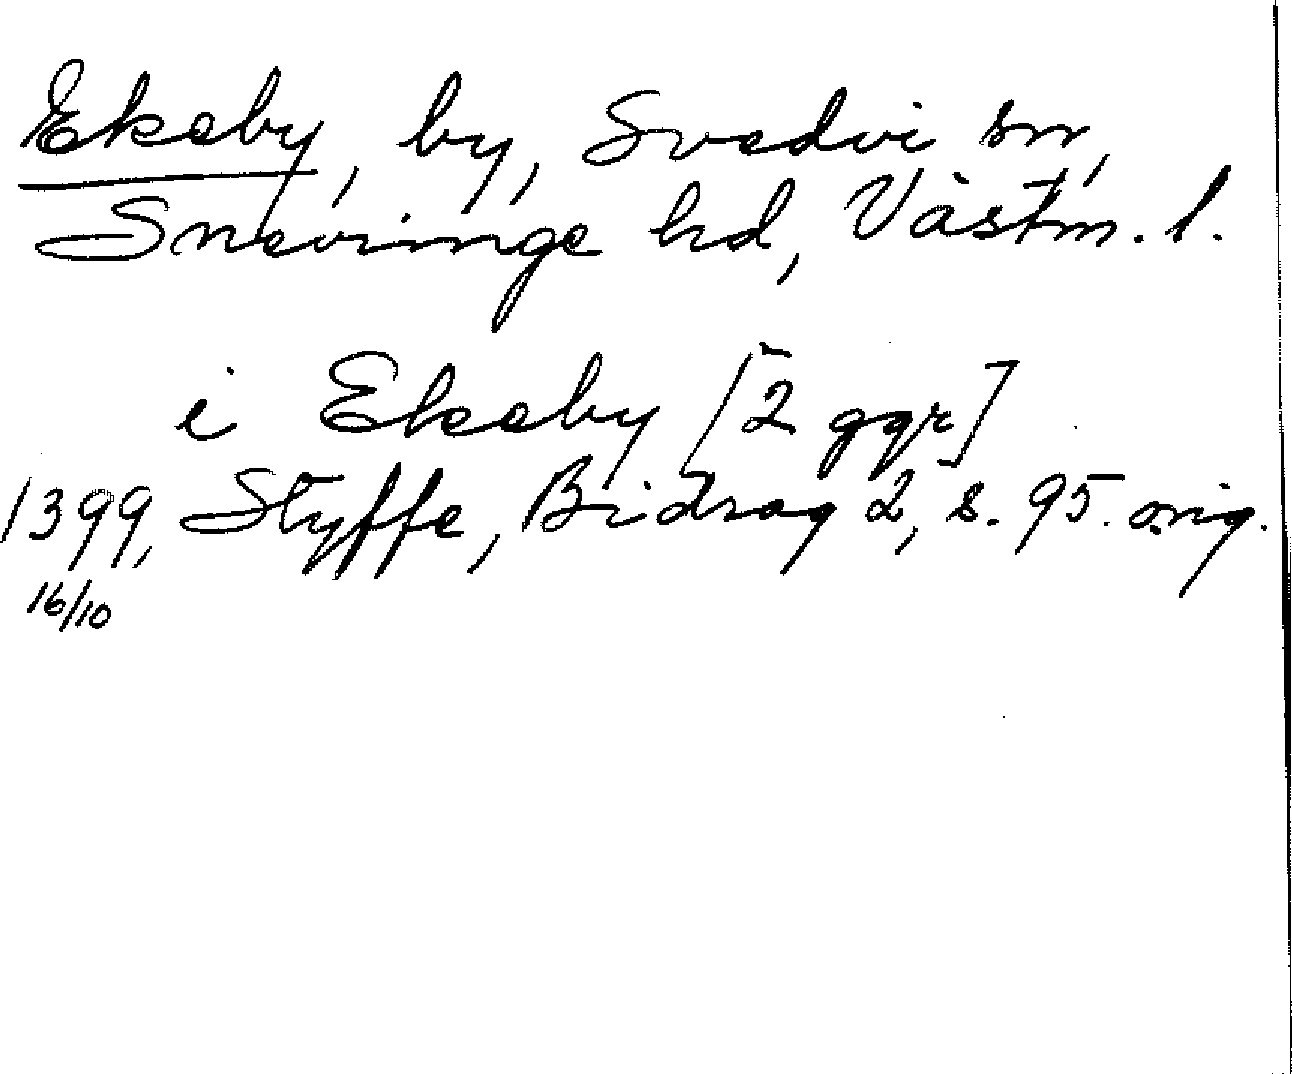 Ekeby, by, Svedvi sn,
Snevringe hd, Västm. l.
i Ekeby [2 ggr]
1399, Styffe, Bidrag 2, s. 95. orig.
16/10